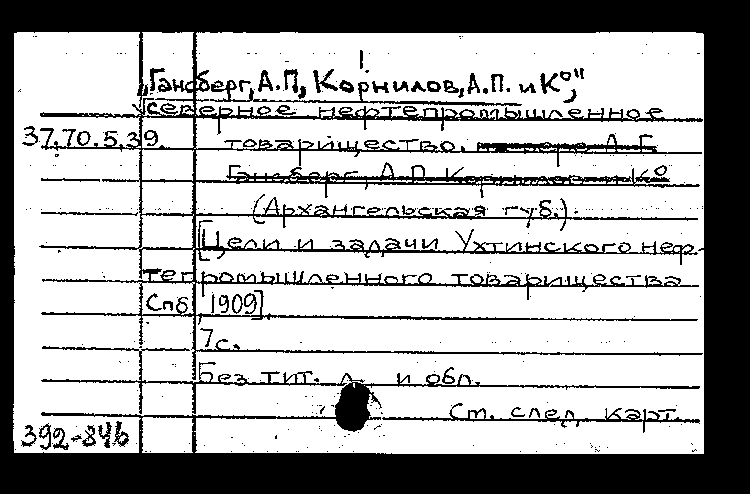 „Гансберг, А.П., Корнилов, А.П. и К°,"
северное нефтепромышленное
37.70.5.39. товарищество.
Гансберг, А.П. Корнилов и К°
(Архангельская губ.).
[Цели и задачи Ухтинского неф-
тепромышленного товарищества
Спб, 1909].
7с.
Без тит. л. и обл.
См. след. карт.
392-846